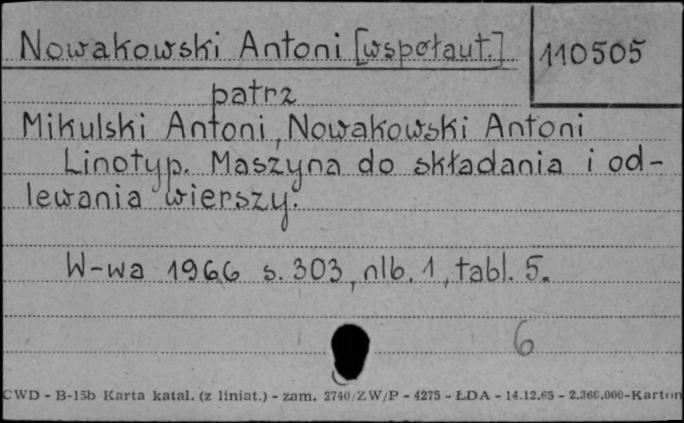 Nowakowski Antoni [wspołaut.] 110505
patrz
Mikulski Antoni, Nowakowski Antoni
Linotyp. Maszyna do składania i od-
lewania wierszy.
W-wa 1966 s. 303, nlb. 1, tabl. 5.
6
CWD - B-15b Karta katal. (z liniat.) - zam. 2740/ZW/P - 4275 - ŁDA - 14.12.65 - 2.360.000-Karton